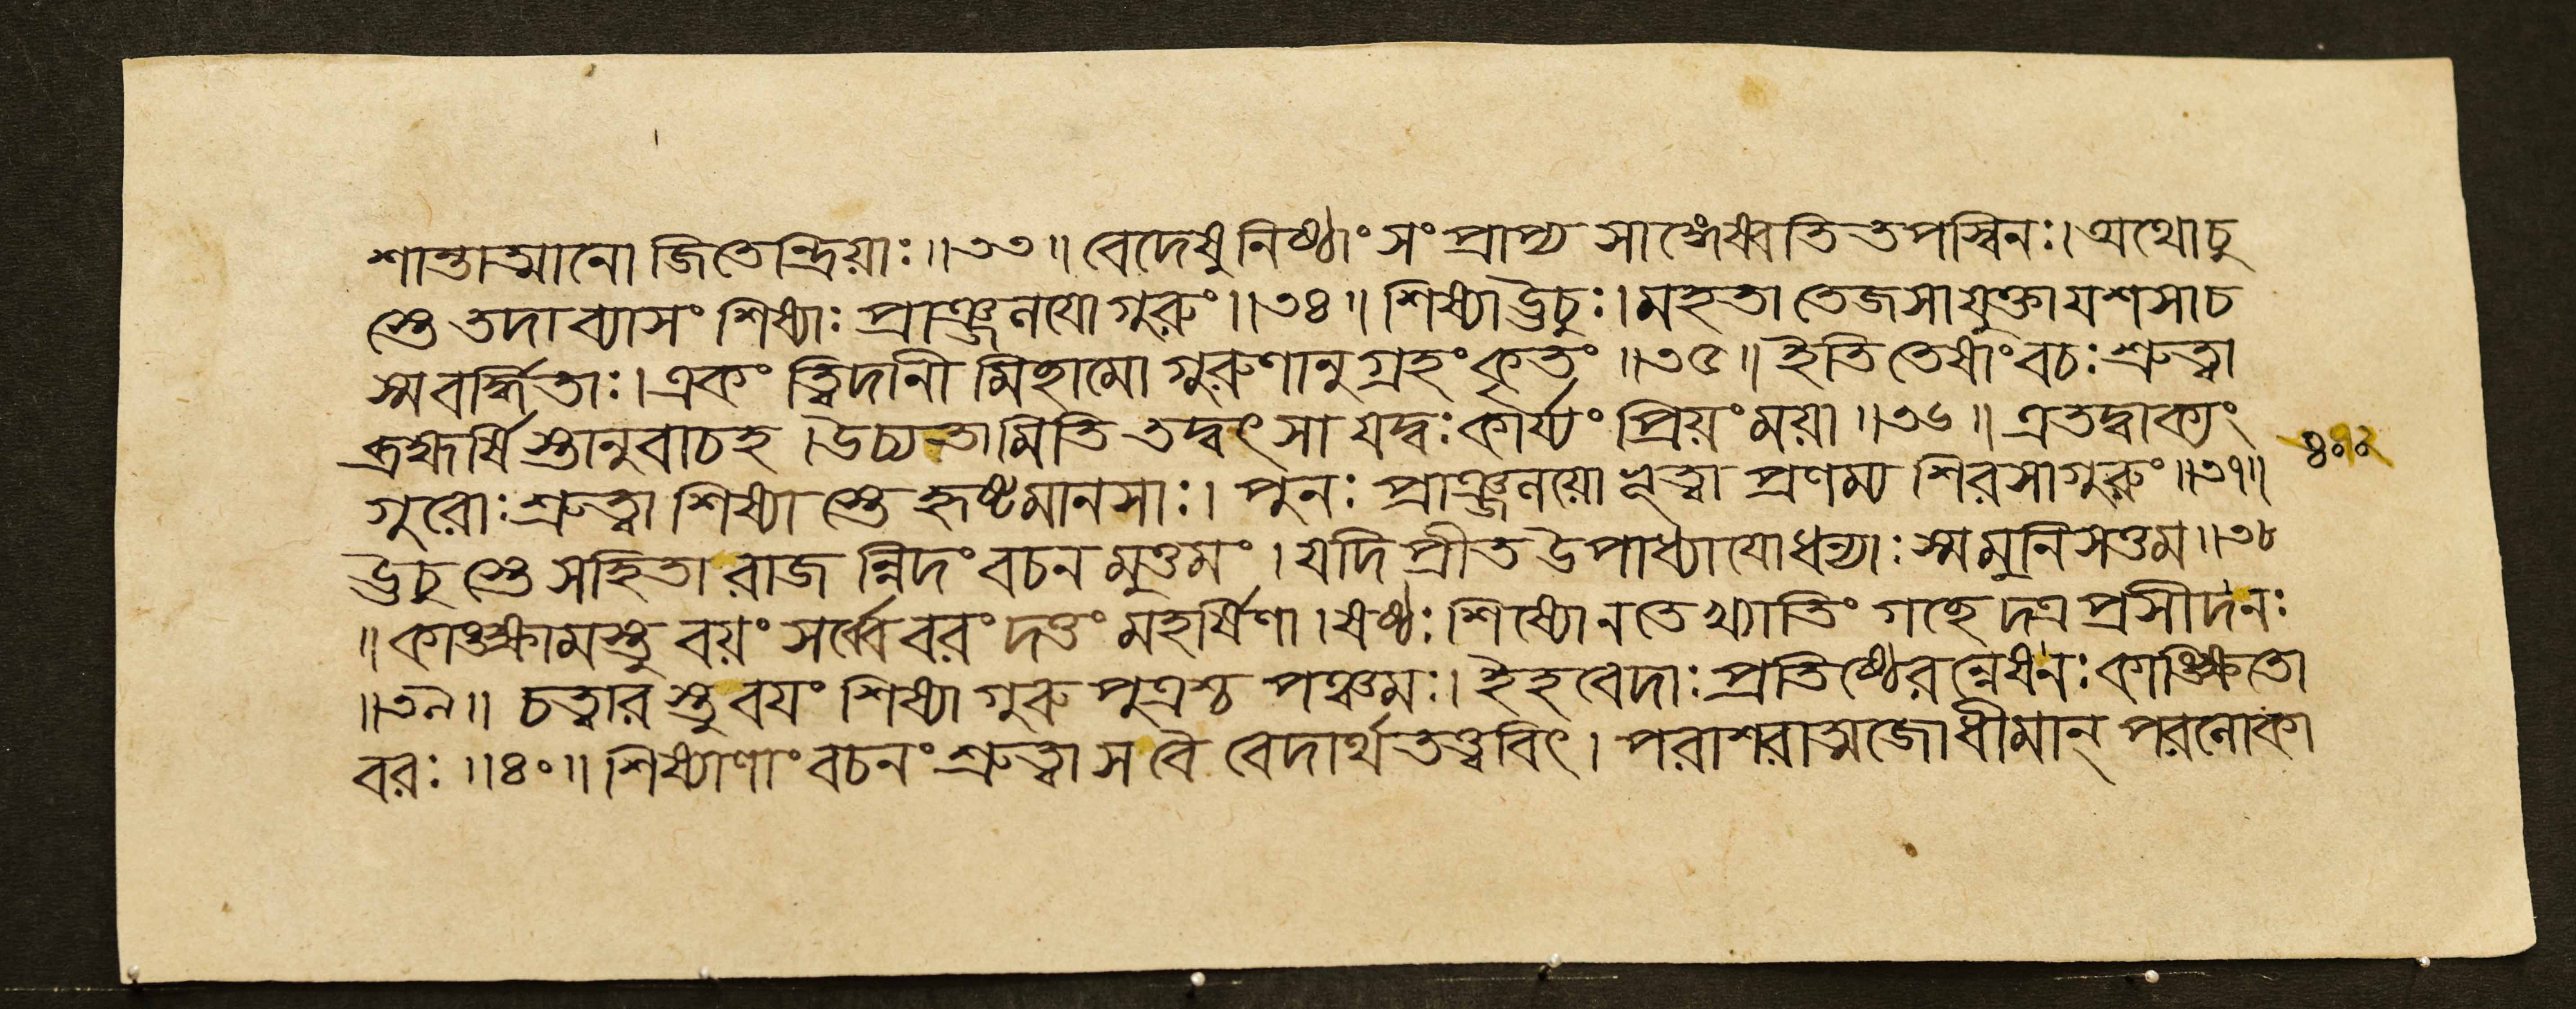 শান্তাত্মানো জিতেন্দ্রিয়াঃ॥৩৩॥ বেদেষু নিষ্ঠাং সংপ্রাপ্য সাঙ্গেষ্বতিতপস্বিনঃ। অথোচু
স্তে তদা ব্যাসং শিষ্যাঃ প্রাঞ্জলয়ো গুরুং॥৩৪॥ শিষ্যাঊচুঃ। মহতা তেজসাযুক্তা যশসাচ
স্মবর্দ্ধিতাঃ। একং ত্বিদানী মিহামো গুরুণানুগ্রহং কৃতং॥৩৫॥ ইতি তেষাংবচঃ শ্রুত্বা
ব্রহ্মর্ষি স্তানুবাচহ। উচ্যতামিতি তদ্বৎসা যদ্বঃকার্য্যং প্রিয়ং ময়া॥৩৬॥ এতদ্বাক্যং
গুরোঃশ্রুত্বা শিষ্যা স্তে হৃষ্টমানসাঃ। পুনঃ প্রাঞ্জলয়ো ভূত্বা প্রণম্য শিরসাগুরুং॥৩৭॥
৪০২
ঊচু স্তে সহিতা রাজ ন্নিদং বচন মুত্তমং। যদি প্রীত উপাধ্যায়োধন্যাঃ স্মমুনিসত্তম॥৩৮
॥কাঙ্ক্ষামস্তু বয়ং সর্ব্বে বরং দত্তং মহর্ষিণা। ষষ্ঠঃ শিষ্যোনতে খ্যাতিং গচ্ছে দত্র প্রসীদনঃ
॥৩৯॥ চত্বার স্তুবয়ং শিষ্যা গুরু পুত্রশ্চ পঞ্চমঃ। ইহবেদাঃ প্রতিষ্ঠেরন্নেষনঃ কাঙ্ক্ষিতো
বরঃ॥৪০॥ শিষ্যাণাং বচনং শ্রুত্বা সবৈ বেদার্থতত্ত্ববিৎ। পরাশরাত্মজোধীমান্ পরলোকা